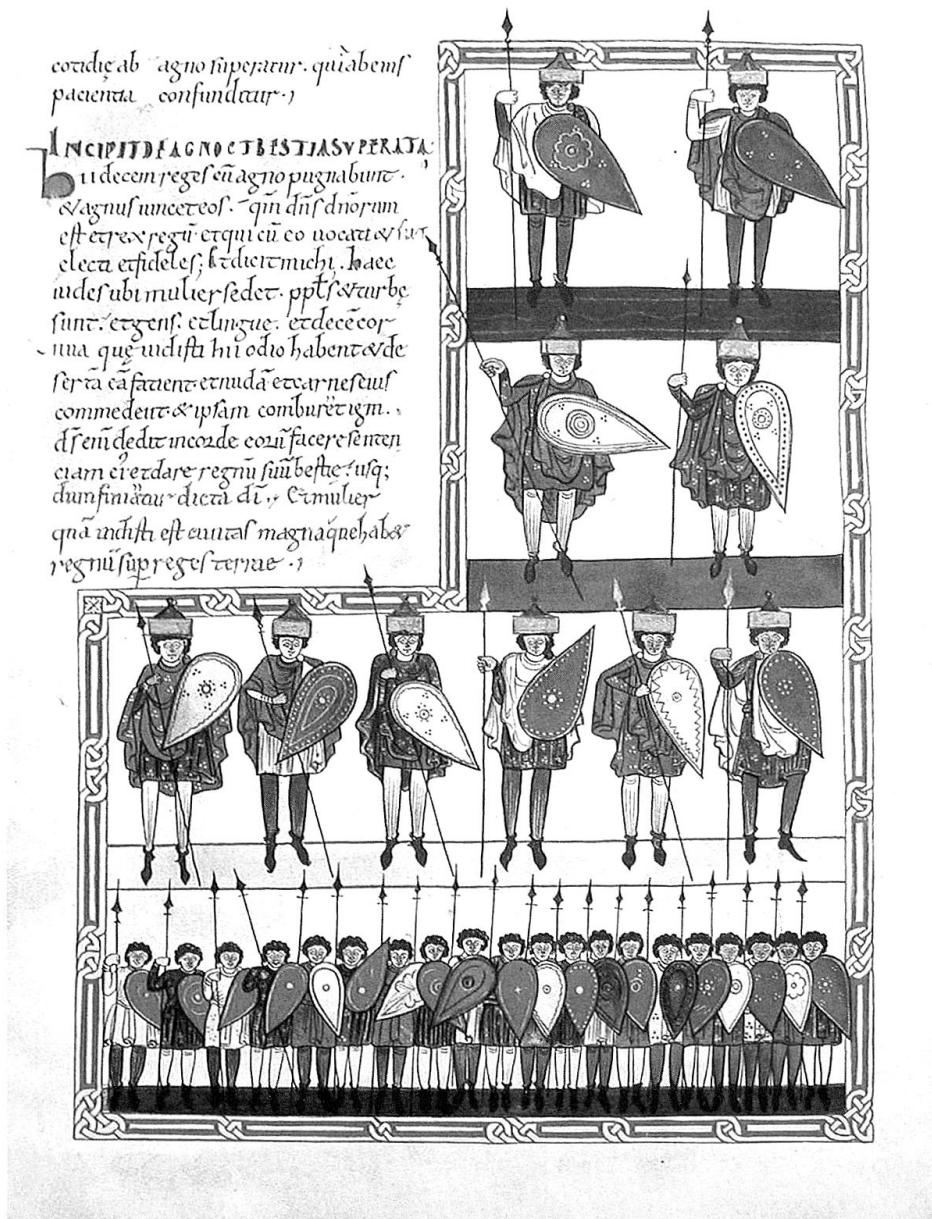 cotidie ab agno superatur. quia bems
pacientia confunditur.
INCIPIT DE AGNO ET BESTIA SUPERATA
hii decem reges cū agno pugnabunt.
& agnus uincet eos. qm̄ dn̄s dn̄orum
est et rex regū et qui cū eo uocati & sunt
electi et fideles; Et dicit michi. haec
uides ubi mulier sedet. ppls & turbę
sunt. et gens. et lingue. et decē cor
nua que uidisti hii odio habent & de
sertā eā facient et nudā et carnes eius
commedent. & ipsam comburēt igni.
ds̄ enī dedit in corde eorū facere senten
ciam ei et dare regnū suū bestie usq;
dum finiātur dicta dī. Et mulier
quā uidisti est ciuitas magna que hab&
regnū sup reges terrae.